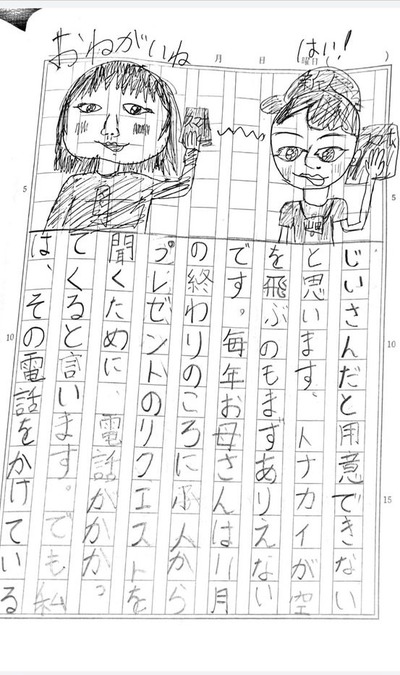 おねがいね
はい!
月 日 曜日( )
じいさんだと用意できない
と思います、トナカイが空
を飛ぶのもまずありえない
です。毎年お母さんは11月
の終わりのころに小人から
プレゼントのリクエストを
聞くために、電話がかかっ
てくると言います。でも私
は、その電話をかけている
5
10
5
10
15